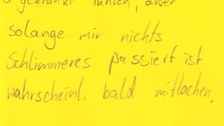 fühlen, aber
solange mir nichts
Schlimmeres passiert ist
wahrscheinl. bald mitlachen